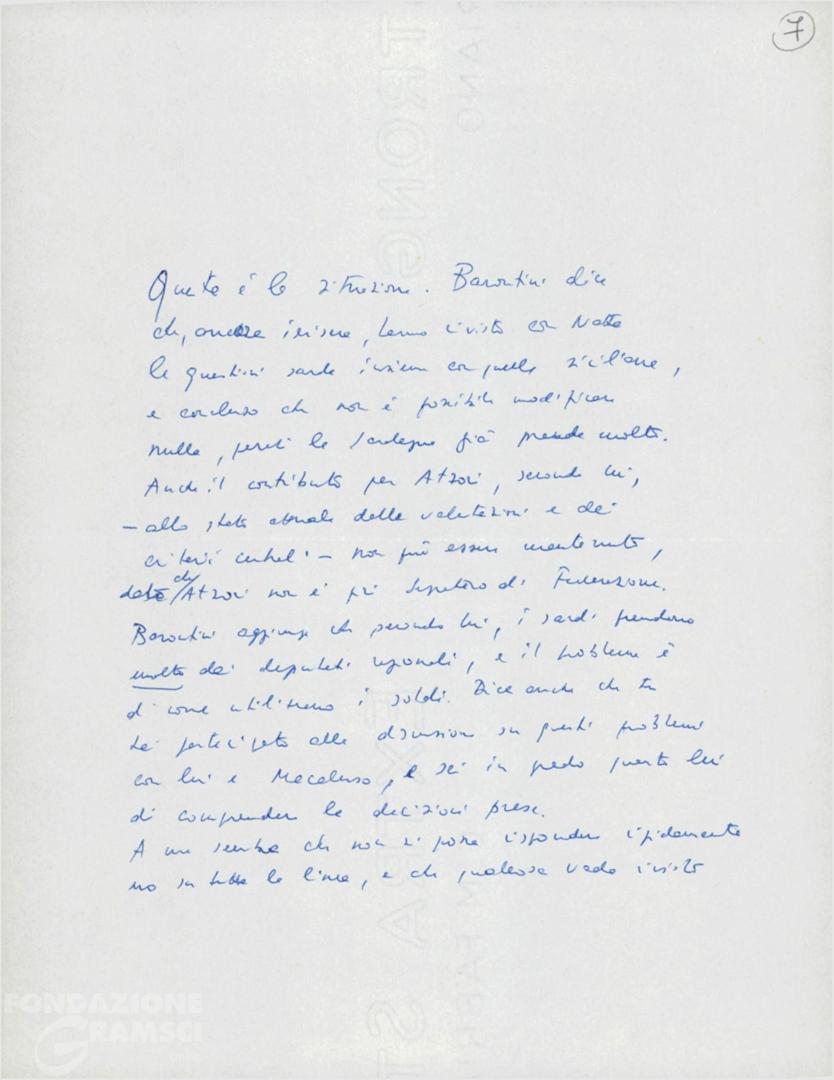 7
Questa è la situazione. Barontini dice
che, ancora ieri sera, hanno rivisto con Natta
le questioni sarde insieme con quelle siciliane,
e concluso che non è possibile modificare
nulla, perché la Sardegna già prende molto.
Anche il contributo per Atzori, secondo lui,
– allo stato attuale delle valutazioni e dei
criteri centrali – non può essere mantenuto,
dato che Atzori non è più Segretario di Federazione.
Barontini aggiunge che secondo lui, i sardi prendono
molto dai deputati regionali, e il problema è
di come utilizzano i soldi. Dice anche che tu
hai partecipato alla discussione su questi problemi
con lui e Macaluso, e sei in grado quanto lui
di comprendere le decisioni prese.
A me sembra che non si possa rispondere rigidamente
no su tutta la linea, e che qualcosa vada rivisto
FONDAZIONE
GRAMSCI